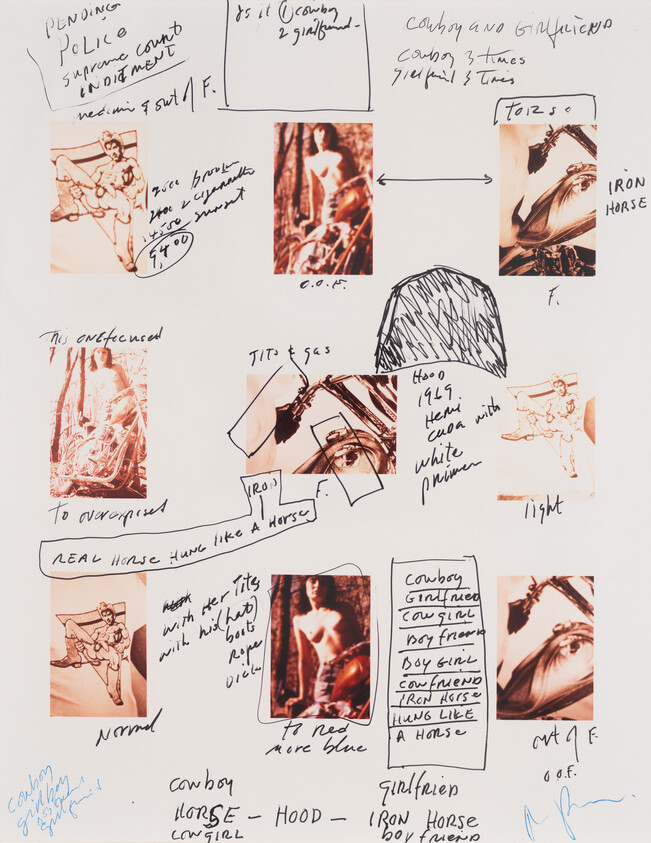 PENDING
POLICE
supreme count
INDITEMENT
medium & out of F.
is it 1 cowboy
2 girlfriend-
COWBOY AND GIRLFRIEND
Cowboy 3 times
girlfriend 3 times
TORSO
2500
2400 2 cigarette
4500 sunset
9,400
IRON
HORSE
O.O.F.
F.
This one focused
TITS & gas
HOOD
1969
Hemi
CUDA with
white
primer
To overexposed
IRON
F.
light
REAL HORSE HUNG LIKE A HORSE
with Her Tits
with his (hat)
boots
Rope
Dick
COWBOY
GIRLFRIED
COWGIRL
BOYFRIEND
BOY GIRL
COWFRIEND
IRON HORSE
HUNG LIKE
A HORSE
Normal
to red
more blue
out of F.
O.O.F.
cowboy
girlboy
COWBOY
GIRLFRIED
HORSE - HOOD - IRON HORSE
COWGIRL
boyfriend